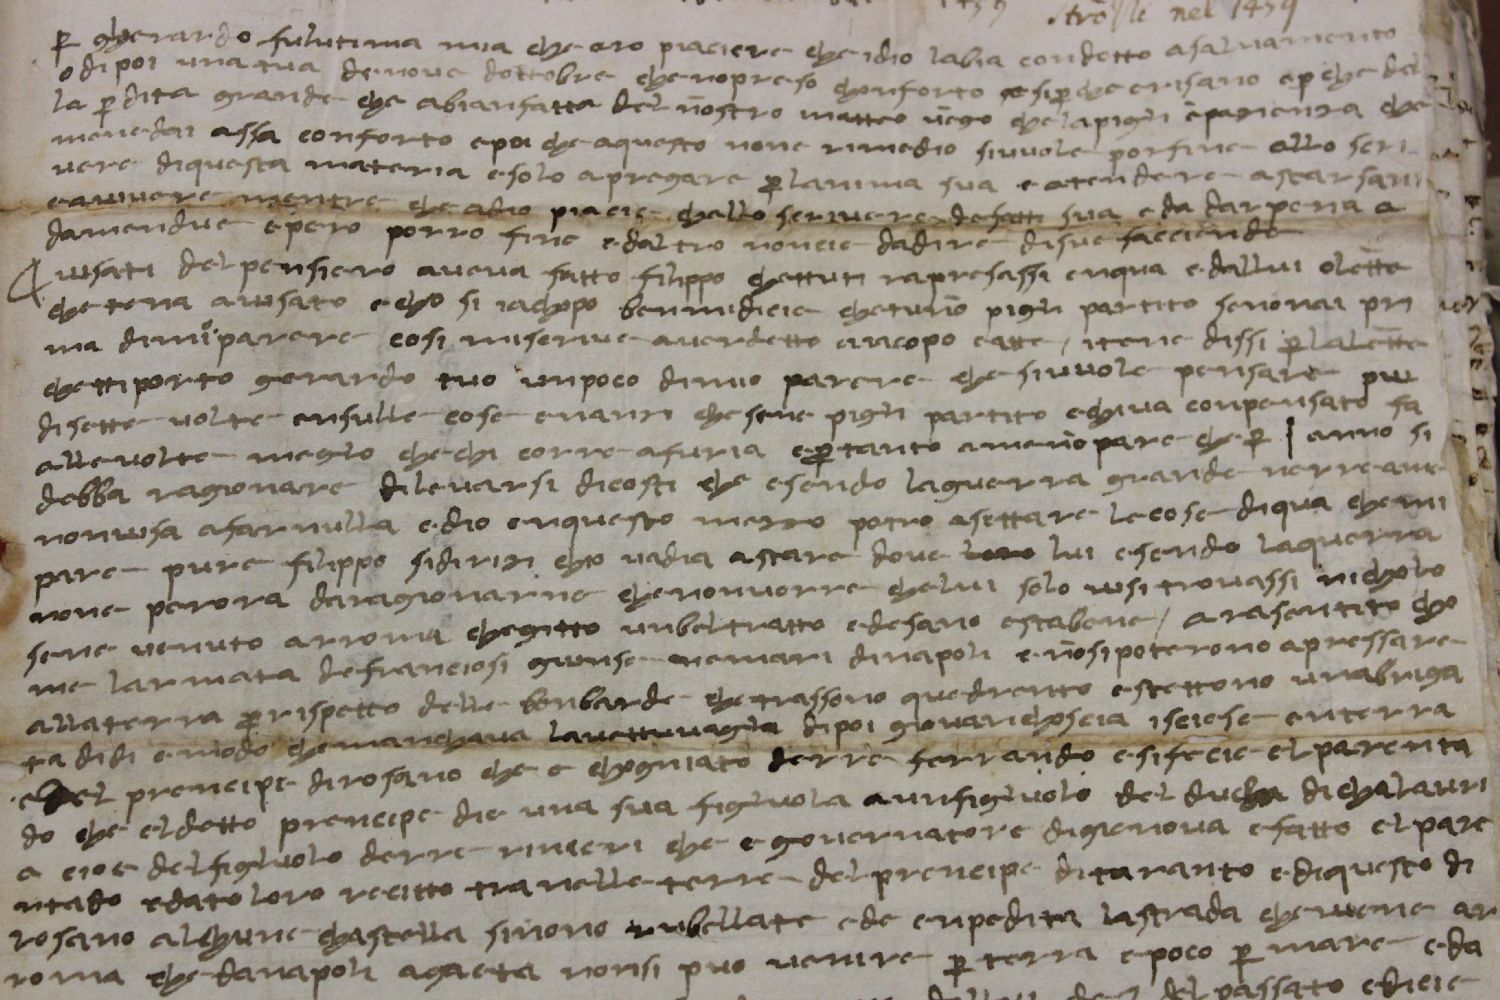 Strozzi nel 1459
p gherardo fulutima mia che oro piaciere che idio labia condotto asalvamento
odipoi una tua denove dottobre che nopreso chonforto esipche erisano epche del
la pdita grande che abianfatta del nostro matteo vego chelapigli epazienza che
mene dai assa conforto epoi cheaquesto none rimedio sivuole porfine allo scri
vere diquesta materia esolo apregare planima sua eatendere astarsani
eavivere mentre che adio piacie challo scrivere desfatti sua eda darpena a
damendue epero porro fine edaltro noncie dadire disue faccienda
avisati delpensiero aveva fatto filippo chettuti rapresassi enqua edallui olette
chetena avisato echo si iachopo benmidicie chetuno pigli partito senonai pri
ma dimio parere cosi miscrive averdetto aiacopo eatte / itene dissi plalette
chettiporto gerardo tuo unpoco dimio parere che sivuole pensare piu
disette volte ensulle cose enanzi chesene pigli partito echiva conpensato fa
allevolte meglo chechi corre afuria eptanto ameno pare che p 1 anno si
debba ragionare dilevarsi dicosti che esendo laguerra grande verreame
nonvisa afarnulla edio enquesto mezzo potro asettare lecose diqua chemi
pare pure filippo sidirizi cho vadia astare dove lui esendo laguerra
none perora daragionarne chenonvorre chelui solo visitrovassi nicholo
sene venuto arroma chegitto unbeltratto edesano estabene / arasentito cho
me larmata defranciosi giunse nemari dinapoli enosipoterono apressare
allaterra prispetto delle bonbarde chetrassono quedrento estettono unabriga
ta didi emodo chemanchava lavettuvaglia dipoi giovanichoscia iscese enterra
edel prencipe dirosano che e chogniato derre ferrando esifecie elparenta
do che eldetto prencipe die una sua figliuola aunfigliuolo del ducha dichalavri
a cioe delfigliuolo derre rinieri che e governatore digienova efatto elpare
ntado edatoloro recitto tranelle terre delprencipe ditaranto ediquesto di
rosano alchune chastella sinono rubellate ede enpedita lastrada cheviene ar
roma che danapoli agaeta nonsi puo venire pterra epoco pmare eda
delpassato edicie